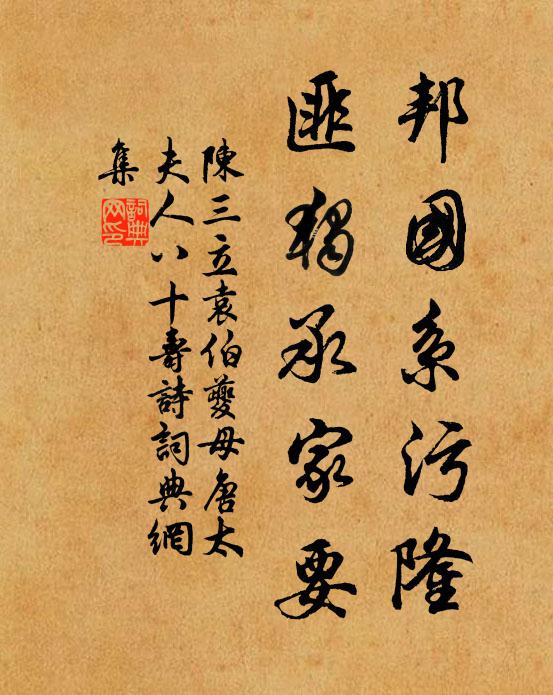 邦國系污隆
匪獨承家要
陳三立袁伯夔母唐太
夫人八十壽詩詞典網
集
詞典
网印